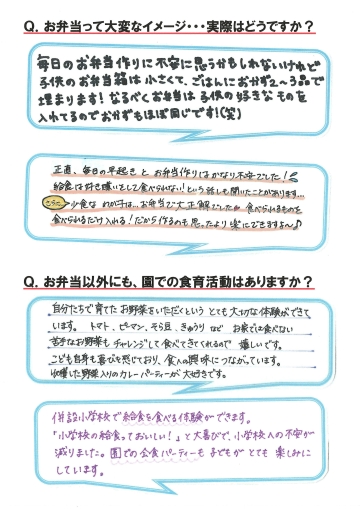 Q. お弁当って大変なイメージ・・・実際はどうですか？
毎日のお弁当作りに不安に思うかもしれないけれど
子供のお弁当箱は小さくて、ごはんにおかず2～3品で
埋まります！なるべくお弁当は子供の好きなものを
入れてるのでおかずもほぼ同じです！(笑)
正直、毎日の早起きとお弁当作りはかなり不安でした！
給食は好き嫌いをして食べられない！という話しも聞いたことがあります…
少食なわが子は…お弁当で大正解でした 食べられるものを
食べられるだけ入れる！だから作るのも思ったより楽にできますよ～♪
Q. お弁当以外にも、園での食育活動はありますか？
自分たちで育てたお野菜をいただくというとても大切な体験ができて
います。トマト、ピーマン、そら豆、きゅうりなど お家では食べない
苦手なお野菜もチャレンジして食べてきてくれるので 嬉しいです。
こども自身も喜びを感じており、食への興味につながっています。
収穫した野菜入りのカレーパーティーが大好きです。
併設小学校で給食を食べる体験ができます。
「小学校の給食っておいしい！」と大喜びで、小学校への不安が
減りました。園での会食パーティーも子どもがとても楽しみに
しています。